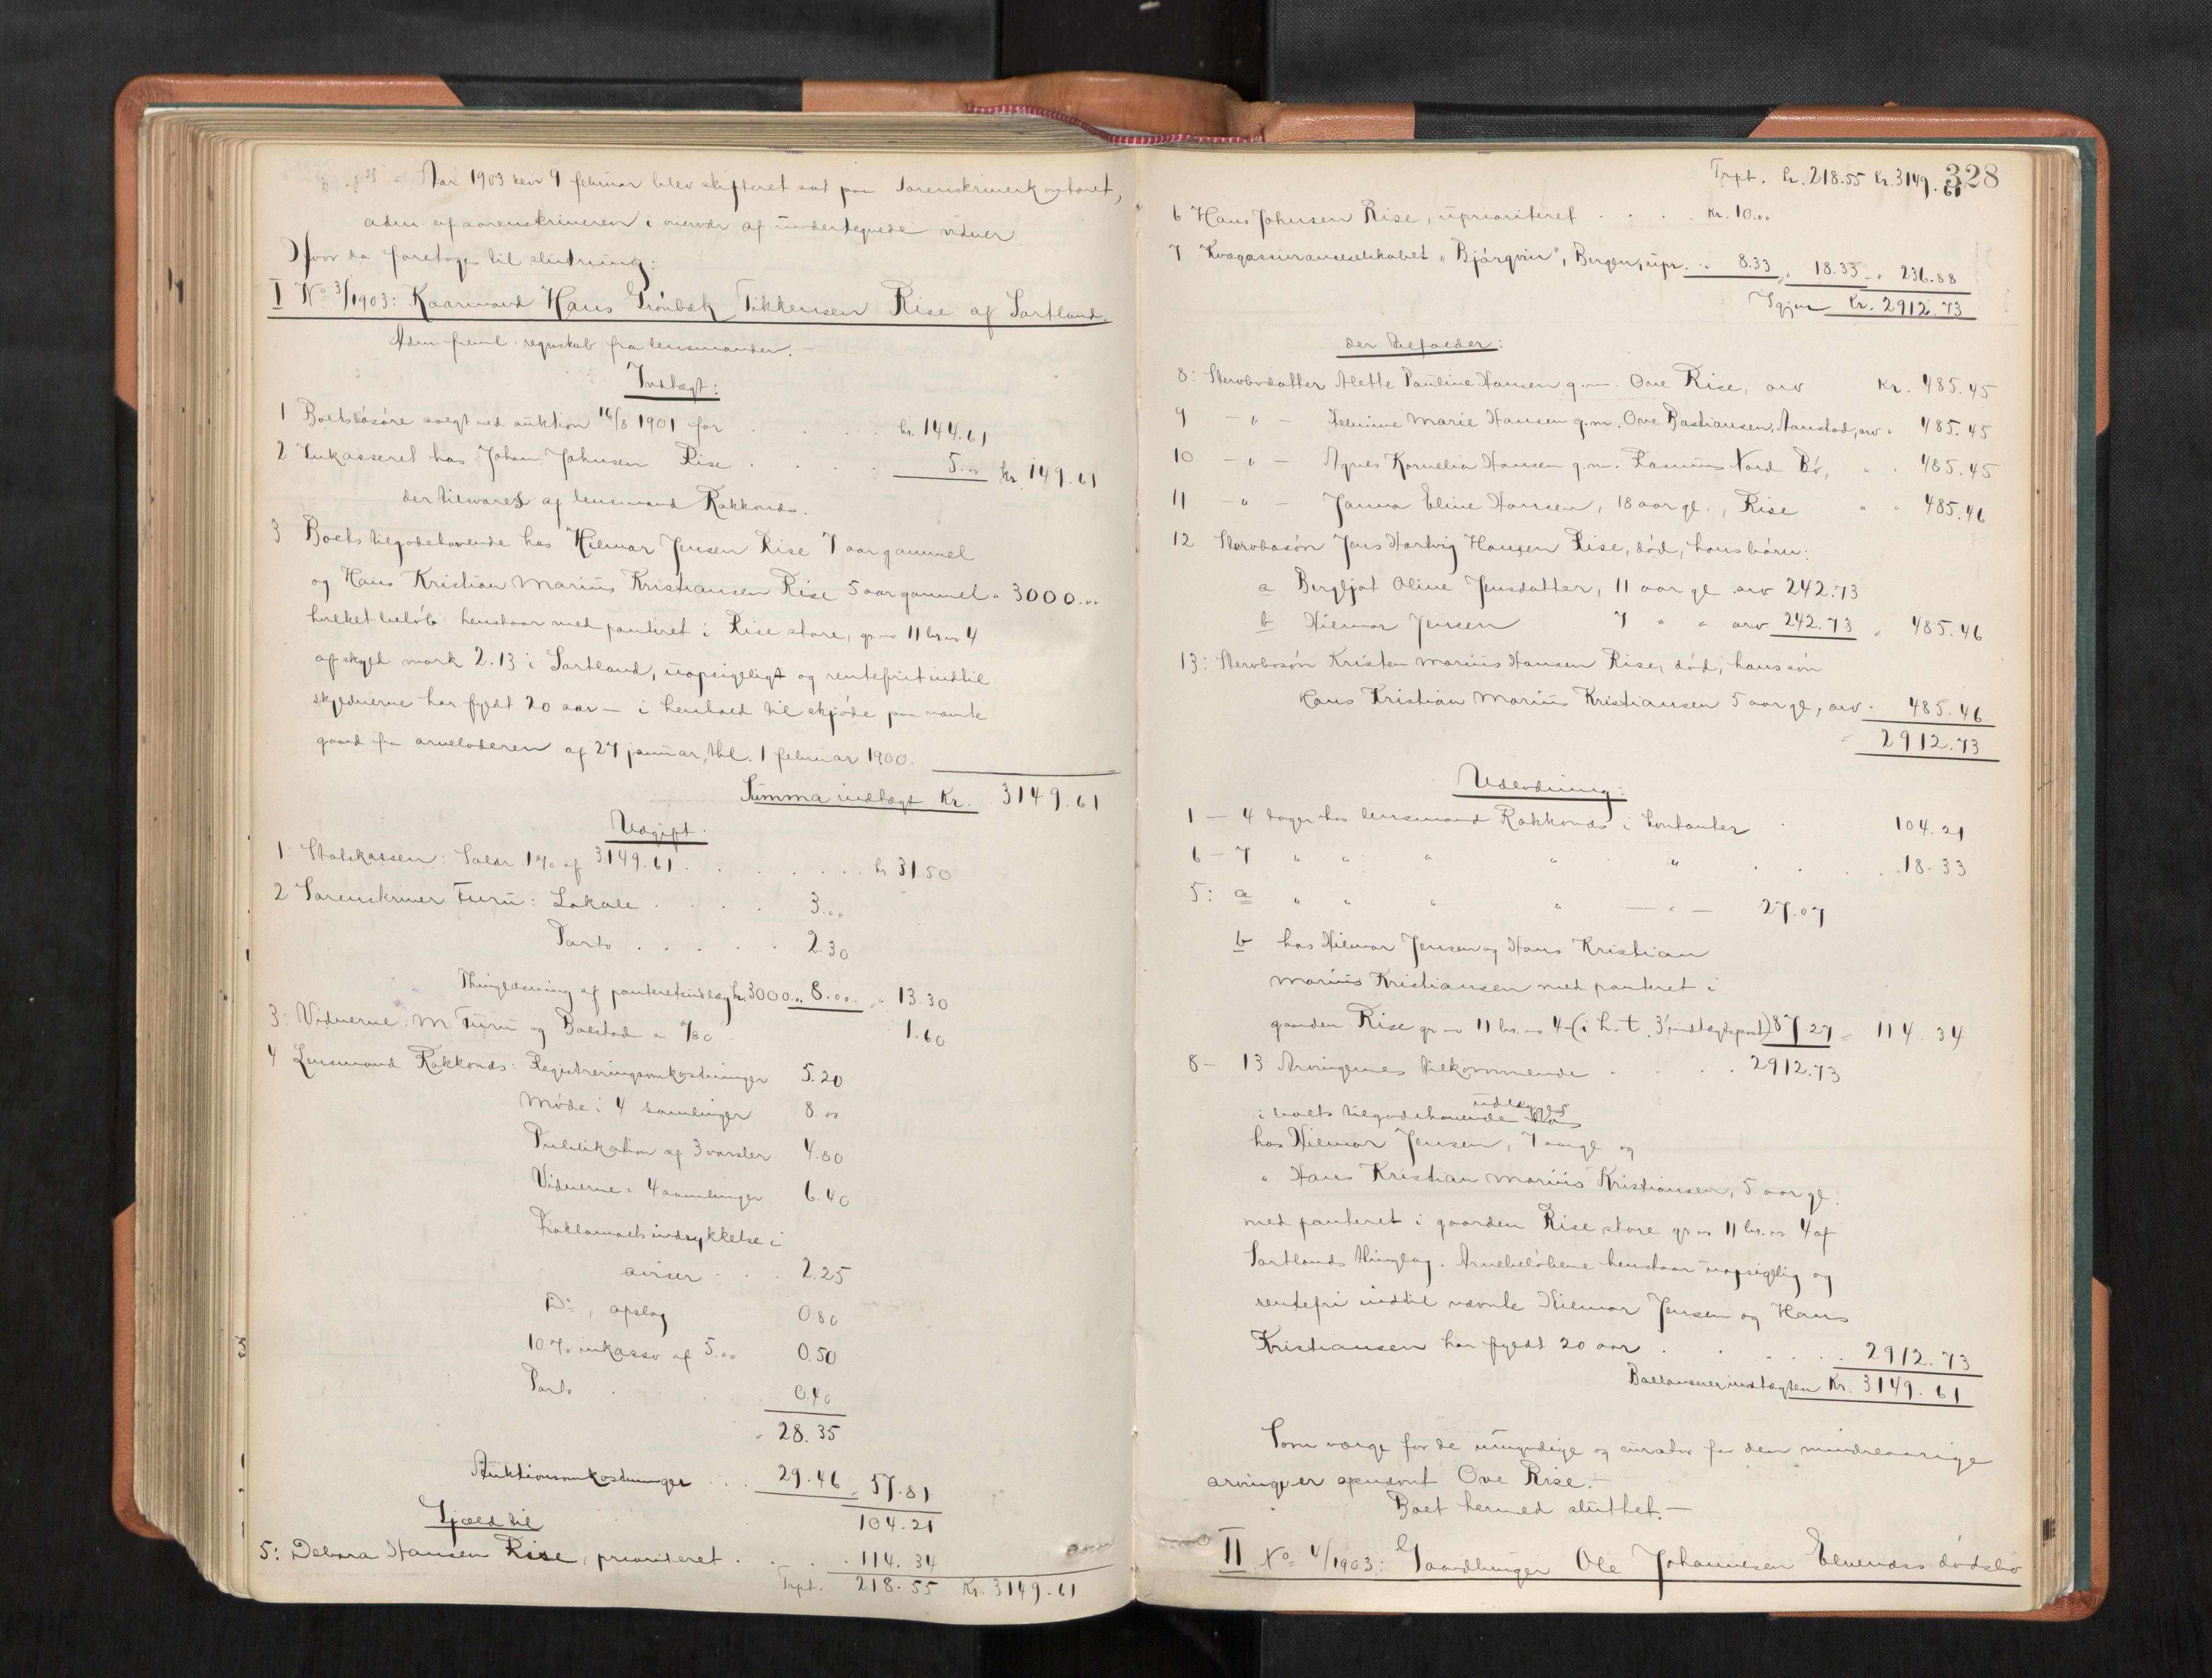 Aar 1903 den 9 februar blev skifteret sat paa Sorenskriverkontoret,
adm. af sorenskriveren i overvær af undertegnede vidner.
Hvor da foretoges til slutning:
I No 3/1903: Kaarmand Hans Grönbek Tikkensen Rise af Sortland.
Adm freml. regnskab fra lensmanden. –
Indtægt:
1 Boets lösöre solgt ved auktion 16/8 1901 for . . . . kr. 144.61
2 Inkasseret hos Johan Johnsen Rise . . . . 5.00 kr. 149.61
der tilvares af lensmand Rokkones.
3 Boets tilgodehavende hos Hilmar Jensen Rise 7 aar gammel
og Hans Kristian Marius Kristiansen Rise 5 aar gammel " 3000.00
hvilket belöb henstaar med panteret i Rise store, gr. no 11 br. no 4
af skyld mark 2.13 i Sortland, uopsigeligt og rentefrit indtil
skyldnerne har fyldt 20 aar – i henhold til skjöde paa nævnte
gaard fra arveladeren af 27 januar, thl. 1 februar 1900.
Summa indtægt Kr. 3149.61
Udgift.
1: Statskassen: Salær 1% af 3149.61 . . . . . . kr 31.50
2 Sorenskriver Furu: Lokale . . . . 3.00
Porto . . . . . 2.30
Thinglæsning af panteretsudlæg kr. 3000.00 8.00 " 13.30
3: Vidnerne: M Furu og Bolstad a /80 1.60
4 Lensmand Rokkones: Registreringsomkostninger 5.20
Möde i 4 samlinger 8.00
Publikation af 3 varsler 4.80
Vidnerne i 4 samlinger 6.40
Proklamaets indrykkelse i
aviser . . . 2.25
Do, opslag 0.80
10% inkasso af 5.00 0.50
Porto . . . . 0.40
" 28.35
Auktionsomkostninger . . 29.46 " 57.81
104.21
Gjæld til
5: Debora Hansen Rise, prioriteret . . . . 114.34
Trpt. 218.55 Kr. 3149.61
328
Trpt. kr. 218.55 kr. 3149.61
6 Hans Johnsen Rise, uprioriteret . . . . kr. 10.00
7 Kvægassuranceselskabet "Björgvin", Bergen, upr. " 8.33 " 18.33 " 236.88
Igjen kr. 2912.73
der tilfalder:
8: Stervbodatter Alette Pauline Hansen g. m. Ove Rise, arv Kr. 485.45
9 – " – Helmine Marie Hansen g. m. Ove Bastiansen, Aanstad, arv " 485.45
10 – " – Agnes Kornelia Hansen g. m. Rasmus Nord Bö, " " 485.45
11 – " – Janna Eline Hansen, 18 aar gl., Rise " " 485.46
12 Stervbosön Jens Hartvig Hansen Rise, död, hans börn:
a Bergljot Oline Jensdatter, 11 aar gl arv 242.73
b Hilmar Jensen 7 " " arv 242.73 " 485.46
13: Stervbosön Kristen Marius Hansen Rise, död, hans sön
Hans Kristian Marius Kristiansen 5 aar gl, arv " 485.46
" 2912.73
Udlodning:
1 – 4 tages hos lensmand Rokkones i kontanter . 104.21
6 – 7 " " " " " . . . 18.33
5: a " " " " – " – 27.07
b hos Hilmar Jensen og Hans Kristian
Marius Kristiansen med panteret i
gaarden Rise gr. no 11 br. no 4 (i h. t. 3' indtægtspost) 87.27 " 114.34
8 – 13 Arvingernes tilkommende . . . . 2912.73
udlægges
i boets tilgodehavende
hos Hilmar Jensen, 7 aar gl og
" Hans Kristian Marius Kristiansen, 5 aar gl:
med panteret i gaarden Rise store gr. no 11 br. no 4 af
Sortlands thinglag. Arvebelöbene henstaar uopsigelig og
rentefri indtil nævnte Hilmar Jensen og Hans
Kristiansen har fyldt 20 aar . . . . . 2912.73
Ballancerer indtægten Kr. 3149.61
Som værge for de umyndige og curator for den mindreaarige
arvinger opnævnt Ove Rise. –
Boet hermed sluttet. –
II No 4/1903: Gaardbruger Ole Johannesen dödsbo